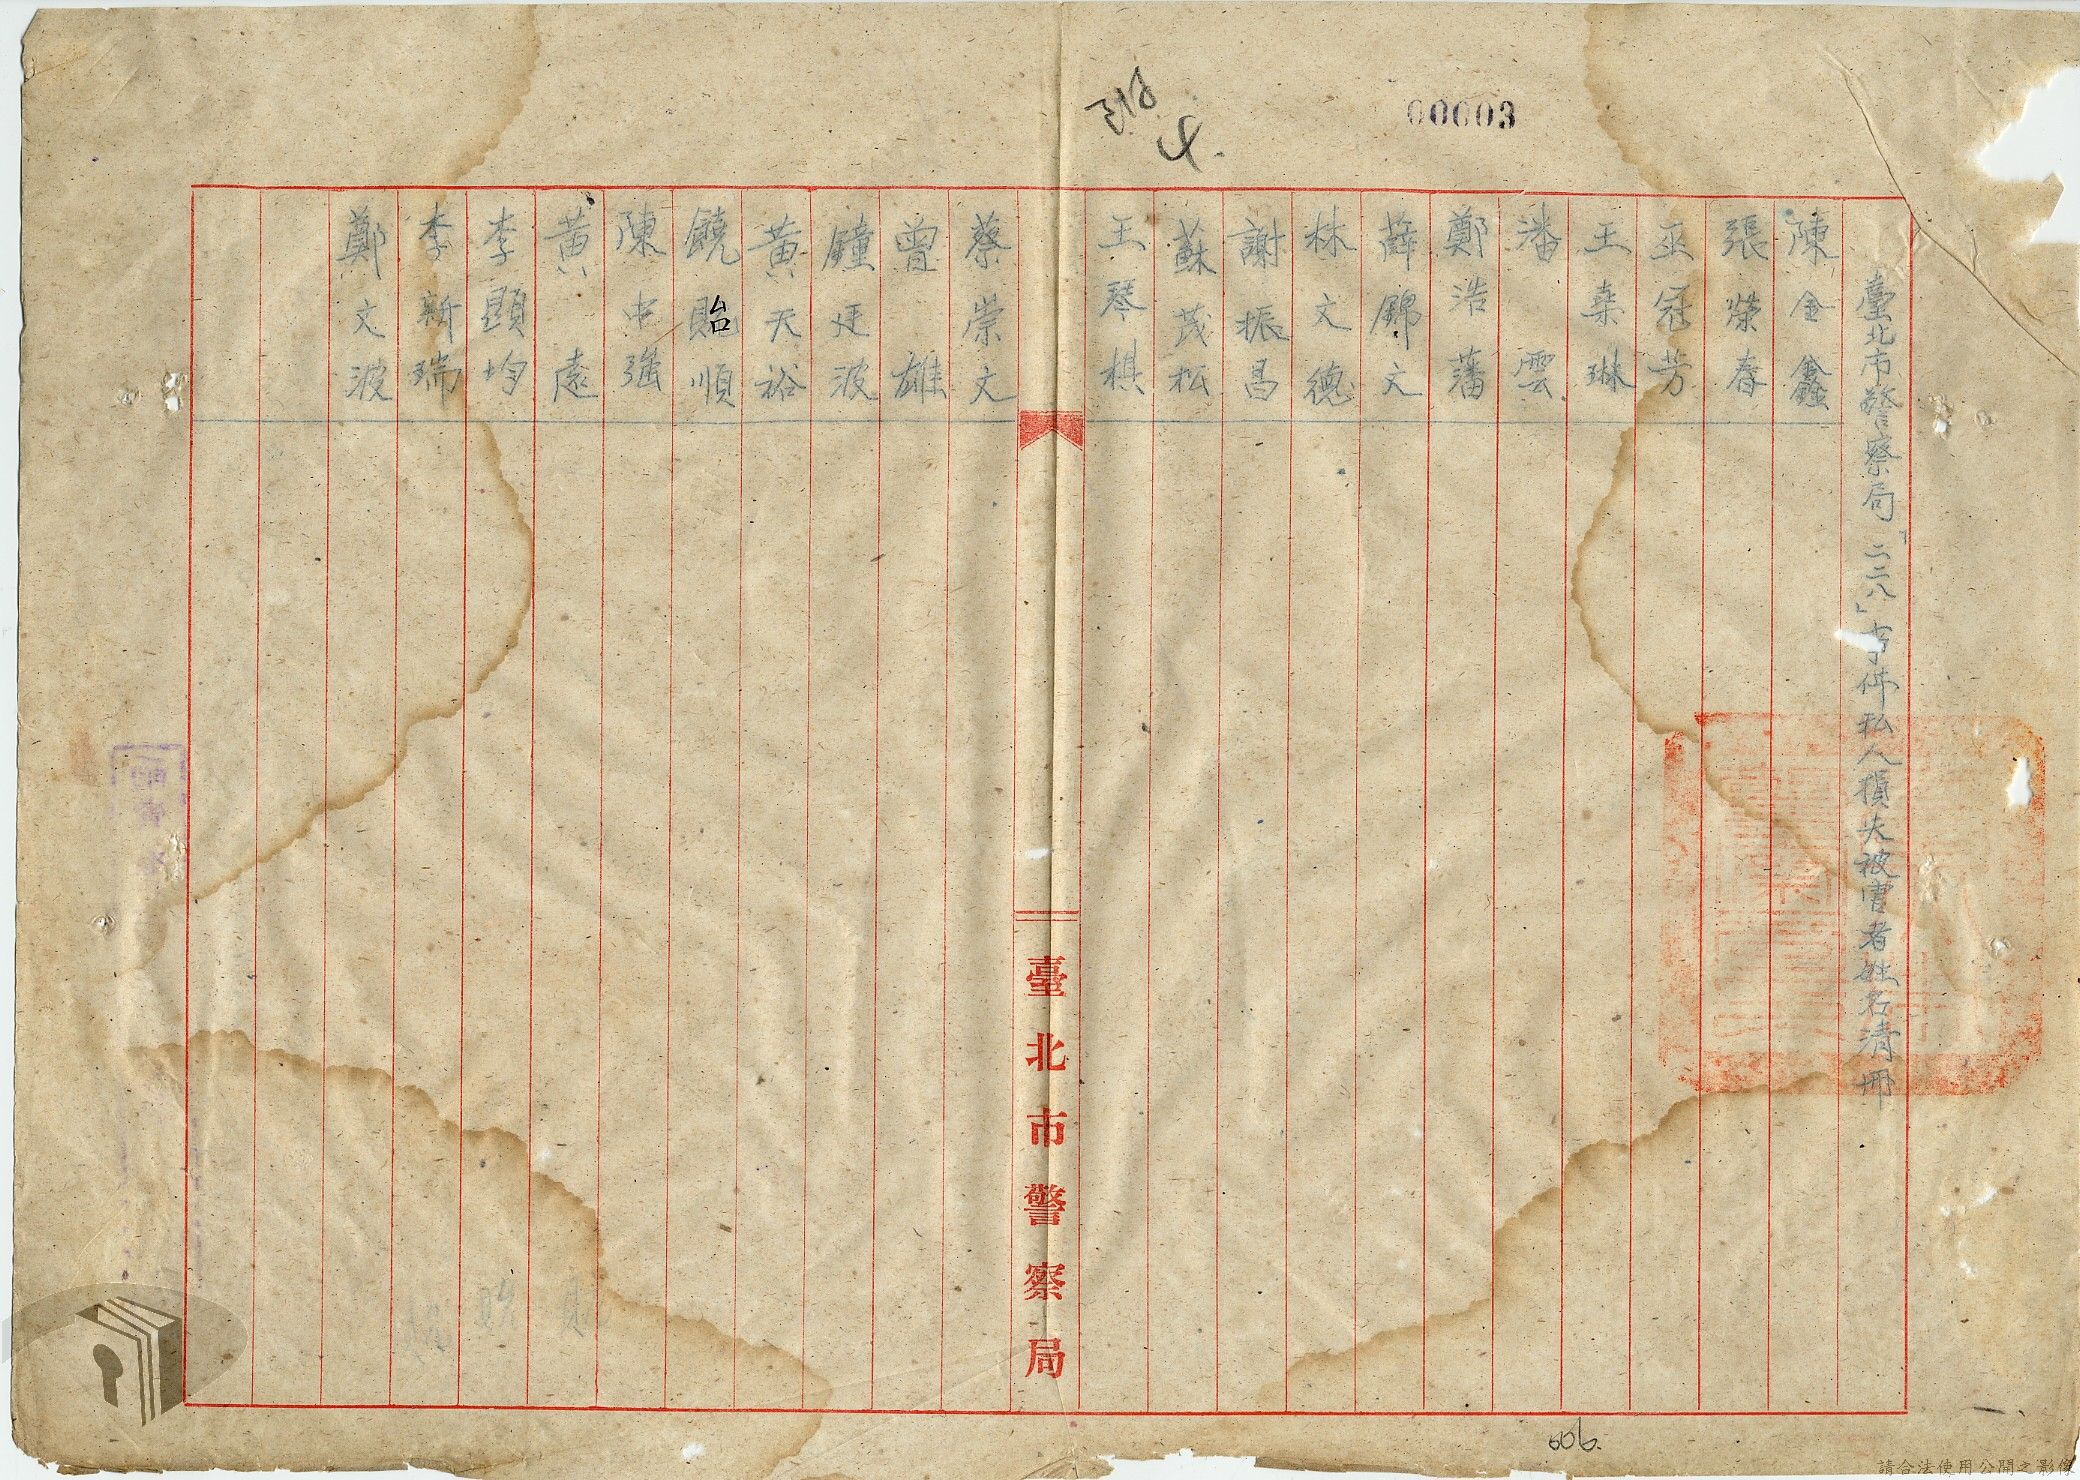 00003
臺北市警察局「二二八」事件私人損失被害者姓名清冊
陳金鑫
張榮春
巫冠芳
王燊琳
潘雲
鄭浩藩
薛錦文
林文德
謝振昌
蘇茂松
王琴棋
臺北市警察局
蔡崇文
曾雄
鐘廷波
黃天裕
饒貽順
陳中強
黃遠
李顯均
李新瑞
鄭文波
606.
請合法使用公開之影像